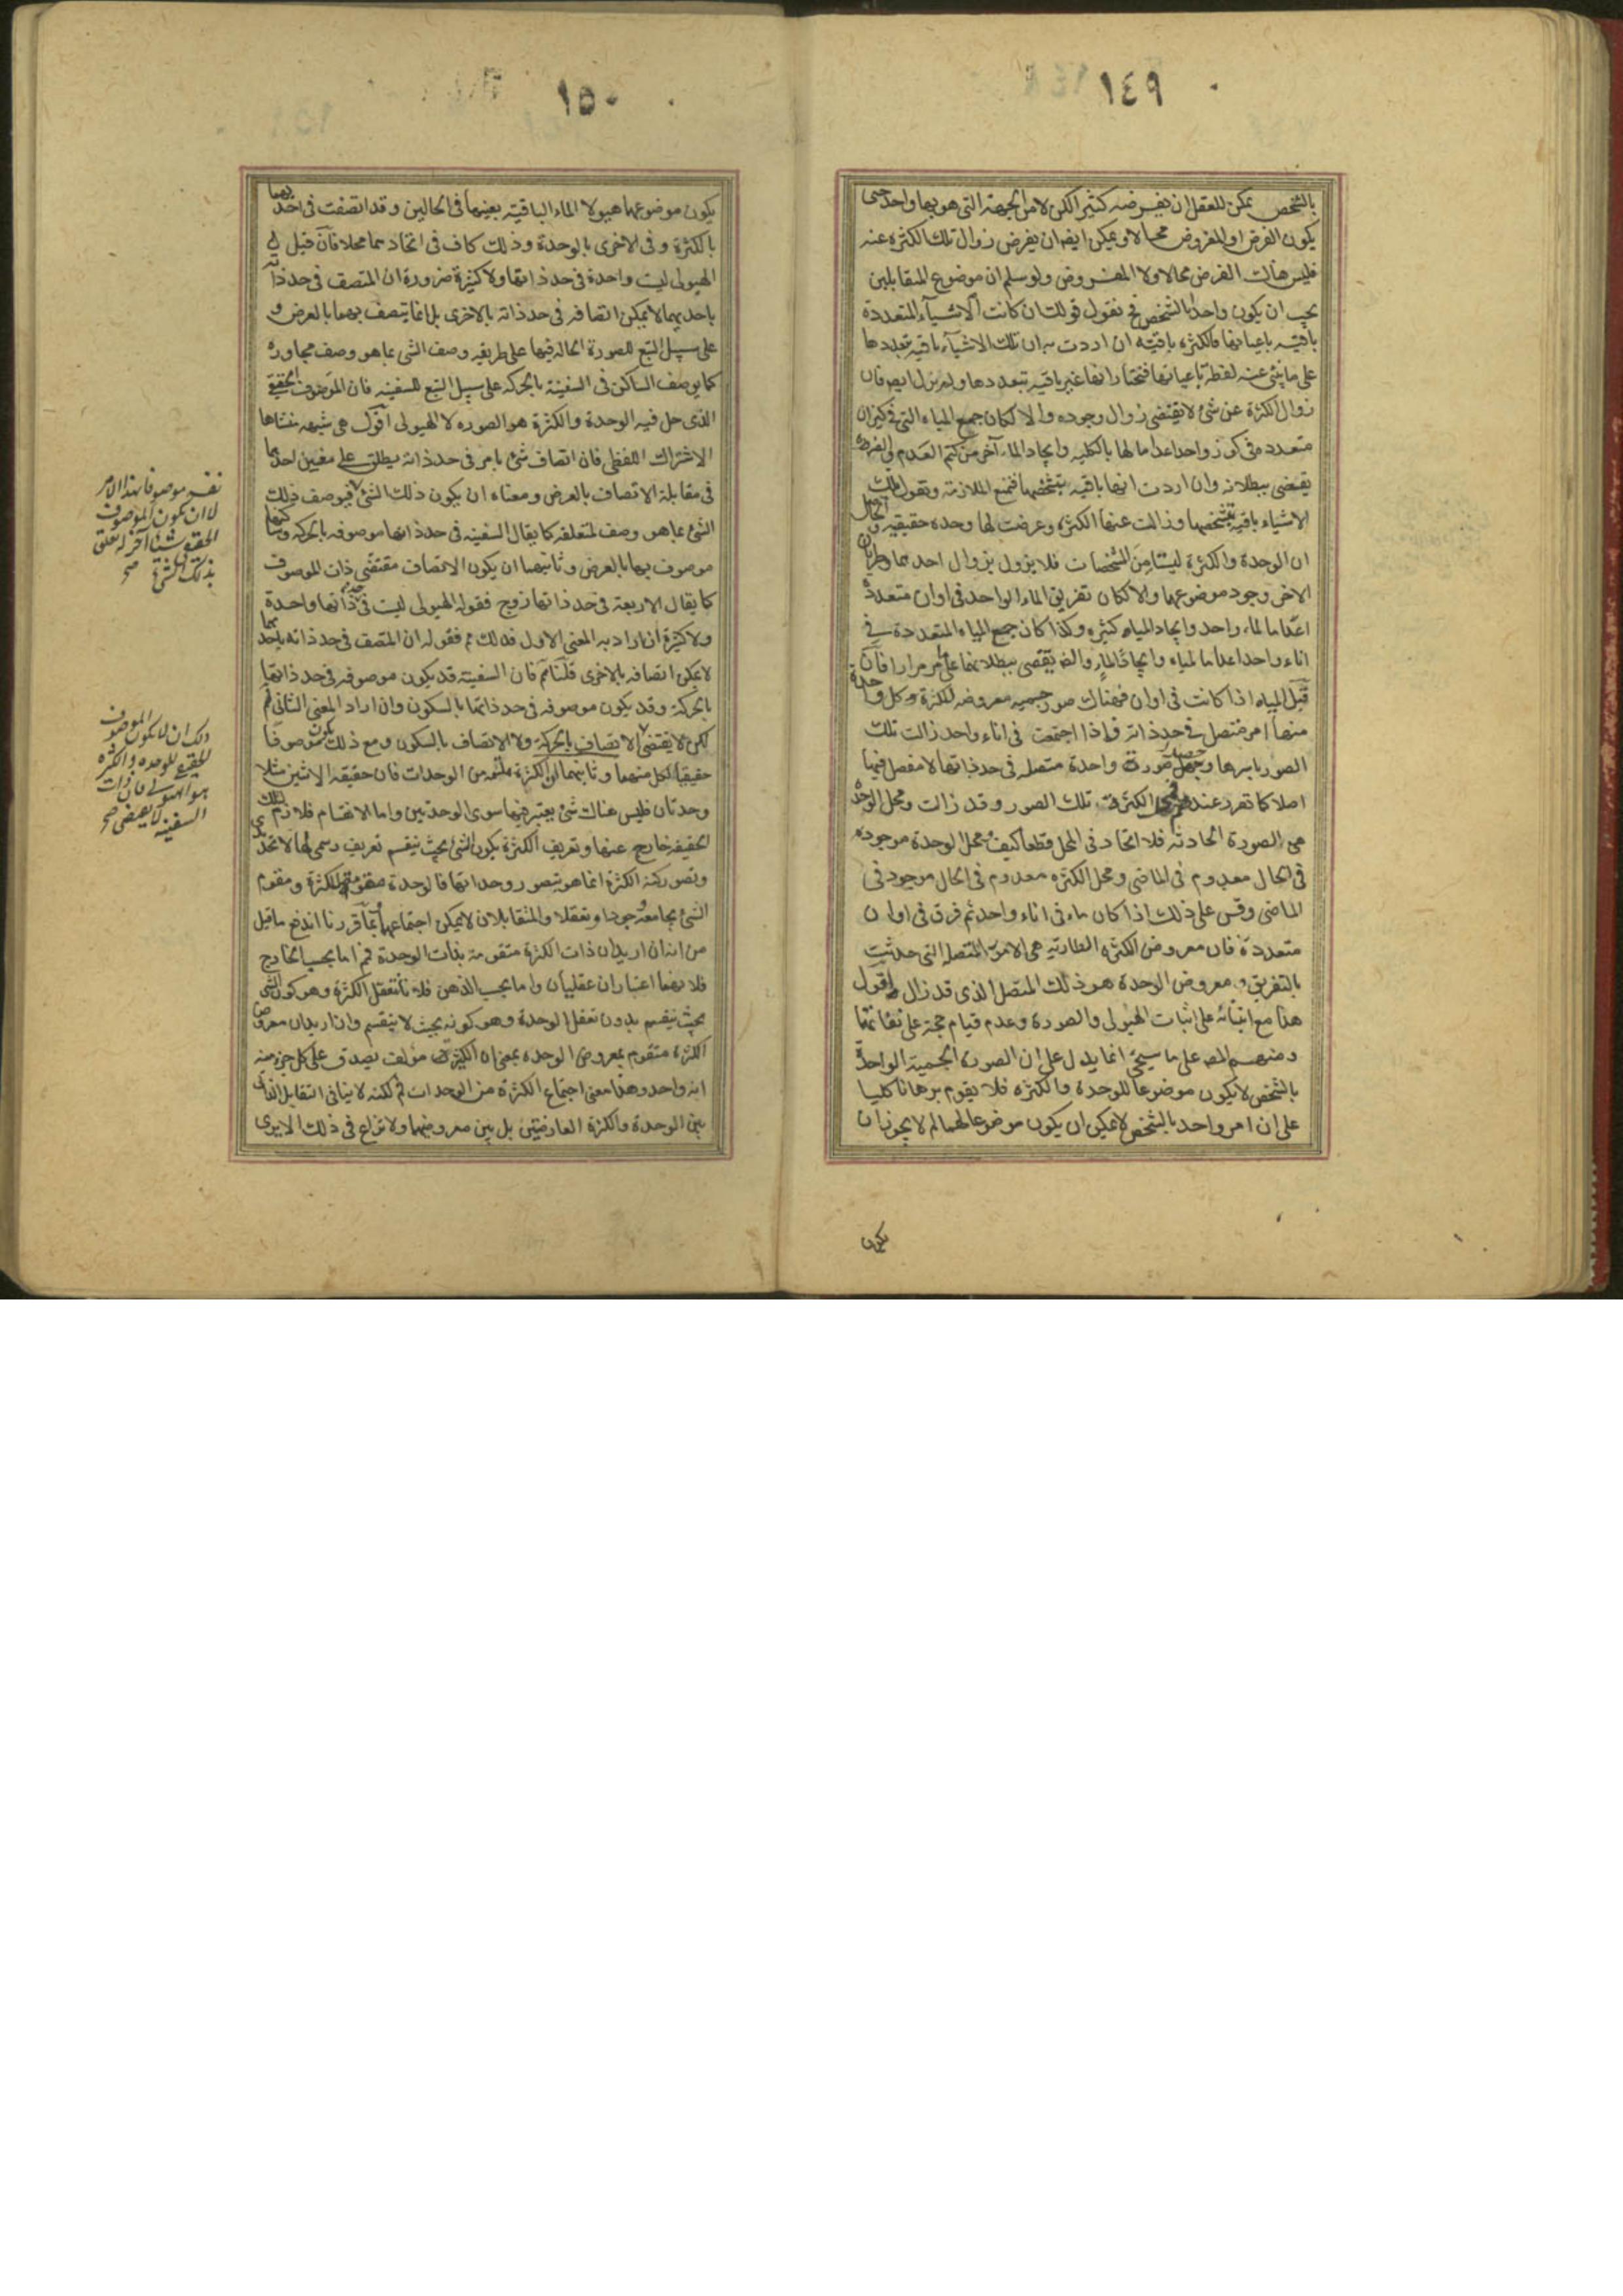 ١٤٩
بالشخص يمكن للعقل ان يفرضه كثيرا لكن لا من الجهة التى هو بها واحد حتى
يكون الفرض او المفروض محالا ويمكن ايضا ان يفرض زوال تلك الكثرة عنه
فليس هناك الفرض محالا ولا المفروض ولو سلم ان موضوع المتقابلين
يجب ان يكون واحدا بالشخص فح نقول قولك ان كانت الاشياء المتعددة
باقية باعيانها فالكثرة باقية ان اردت به ان تلك الاشياء باقية بتعددها
على ما ينبئ عنه لفظة باعيانها فنختار انها غير باقية بتعددها ولم يزل ايضا فان
زوال الكثرة عن شئ لا يقتضى زوال وجوده والا لكان جمع المياه التى فى كيزان
متعددة فى كوز واحد اعداما لها بالكلية وايجاد الماء آخر من كتم العدم والضرورة
يقضى ببطلانه وان اردت انها باقية بتشخصها فنمنع الملازمة ونقول تلك
الاشياء باقية بتشخصها وزالت عنها الكثرة وعرضت لها وحدة حقيقية والحال
ان الوحدة والكثرة ليستا من المشخصات فلا يزول بزوال احدهما وطريان
الاخر وجود موضوعهما والا لكان تفريق الماء الواحد فى اوان متعددة
اعداما لماء واحد وايجاد المياه كثيرة وكذا كان جمع المياه المتعددة فى
اناء واحد اعداما لمياه وايجادا لماء والضرورة يقضى ببطلانهما على ما مر مرارا فان
قيل المياه اذا كانت فى اوان فهناك صور جسمية معروضة للكثرة وكل واحدة
منها امر متصل فى حد ذاته فاذا اجتمعت فى اناء واحد زالت تلك
الصور باسرها وحصل صورة واحدة متصلة فى حد ذاتها لا مفصل فيها
اصلا كما تقرر عندهم الكثرة تلك الصور وقد زالت ومحل الوحدة
هى الصورة الحادثة فلا اتحاد فى المحل قطعا كيف ومحل الوحدة موجودة
فى الحال معدوم فى الماضى ومحل الكثرة معدوم فى الحال موجود فى
الماضى وقس على ذلك اذا كان ماء فى اناء واحد ثم فرق فى اوان
متعددة فان معروض الكثرة الطارية هى الامور المتصلة التى حدثت
بالتفريق ومعروض الوحدة هو ذلك المتصل الذى قد زال اقول
هذا مع ابتنائه على اثبات الهيولى والصورة وعدم قيام حجة على
المص على ما سيجئ انما يدل على ان الصورة الجسمية الواحدة
بالشخص لا يكون موضوعا للوحدة والكثرة فلا يقوم برهانا كليا
على ان امر واحد بالشخص لا يمكن ان يكون موضوعا لهما لم لا يجوز ان
يكون
١٥٠
يكون موضوعهما هيولا الماء الباقية بعينها فى الحالين وقد اتصفت فى احدىهما
بالكثرة وفى الاخرى بالوحدة وذلك كاف فى اتحادهما محلا فان قيل
الهيولى ليست واحدة فى حد ذاتها ولا كثيرة ضرورة ان المتصف فى حد ذاته
باحديهما لا يمكن اتصافه فى حد ذاته بالاخرى بل انما يتصف بهما بالعرض و
على سبيل التبع للصورة الحالة فيها على طريقة وصف الشئ بما هو وصف مجاوره
كما يوصف الساكن فى السفينة بالحركة على سبيل التبع للسفينة فان الموصوف الحقيقى
الذى حل فيه الوحدة والكثرة هو الصورة لا الهيولى اقول هى شبهة منشاها
الاشتراك اللفظى فان اتصاف شئ بامر فى حد ذاته يطلق على معنيين احدهما
فى مقابلة الاتصاف بالعرض ومعناه ان يكون ذلك الشئ لا فيوصف ذلك
الشئ بما هو وصف لمتعلقه كما يقال السفينة فى حد ذاتها موصوفة بالحركة وساكنها
موصوف بها بالعرض وثانيهما ان يكون الاتصاف مقتضى ذات الموصوف
كما يقال الاربعة فى حد ذاتها زوج فقوله الهيولى ليست فى حد ذاتها واحدة
ولا كثيرة ان اراد به المعنى الاول فذلك مم فقوله ان المتصف فى حد ذاته باحدهما
لا يمكن اتصافه بالاخرى قلنا مم فان السفينة قد يكون موصوفة فى حد ذاتها
بالحركة وقد يكون موصوفة فى حد ذاتها بالسكون وان اراد المعنى الثانى فم
لكن لا يقتضى الاتصاف بالحركة ولا الاتصاف بالسكون ومع ذلك يكون موصوفا
حقيقيا لكل منهما وثانيهما ان الكثرة ملتئمة من الوحدات فان حقيقة الاثنين مثلا
وحدتان فليس هناك شئ يعتبر فيها سوى الوحدتين واما الانقسام فلازم لتلك
الحقيقة خارج عنها وتعريف الكثرة بكون الشئ بحيث ينقسم تعريف رسمى لها لا تحديد
وتصور كنه الكثرة انما هو بتصور وحداتها فالوحدة مقومة للكثرة ومقوم
الشئ يجامعه وجودا وتعقلا والمتقابلان لا يمكن اجتماعهما بما قررنا اندفع ما قيل
من انه ان اريد ان ذات الكثرة متقومة بذات الوحدة فمم اما بحسب الخارج
فلانهما اعتباران عقليان واما بحسب الذهن فلانا نتعقل الكثرة وهو كون الشئ
بحيث ينقسم بدون تعقل الوحدة وهو كونه بحيث لا ينقسم وان اريد ان معروض
الكثرة متقوم بمعروض الوحدة بمعنى ان الكثير مؤلف يصدق على كل جزء منه
انه واحد وهذا معنى اجتماع الكثرة من الوحدات فم لكنه لا ينافى التقابل الذاتى
بين الوحدة والكثرة العارضتين بل بين معروضيهما ولا نزاع فى ذلك الا يرى
نفسه موصوفا بهذا الامر
لا ان يكون الموصوف
الحقيقى شيئا آخر له تعلق
بذلك الشئ صح
ذلك ان لا يكون الموصوف
الحقيقى للوحدة والكثرة
هو الهيولى فان ذات
السفينة لا يقتضى صح